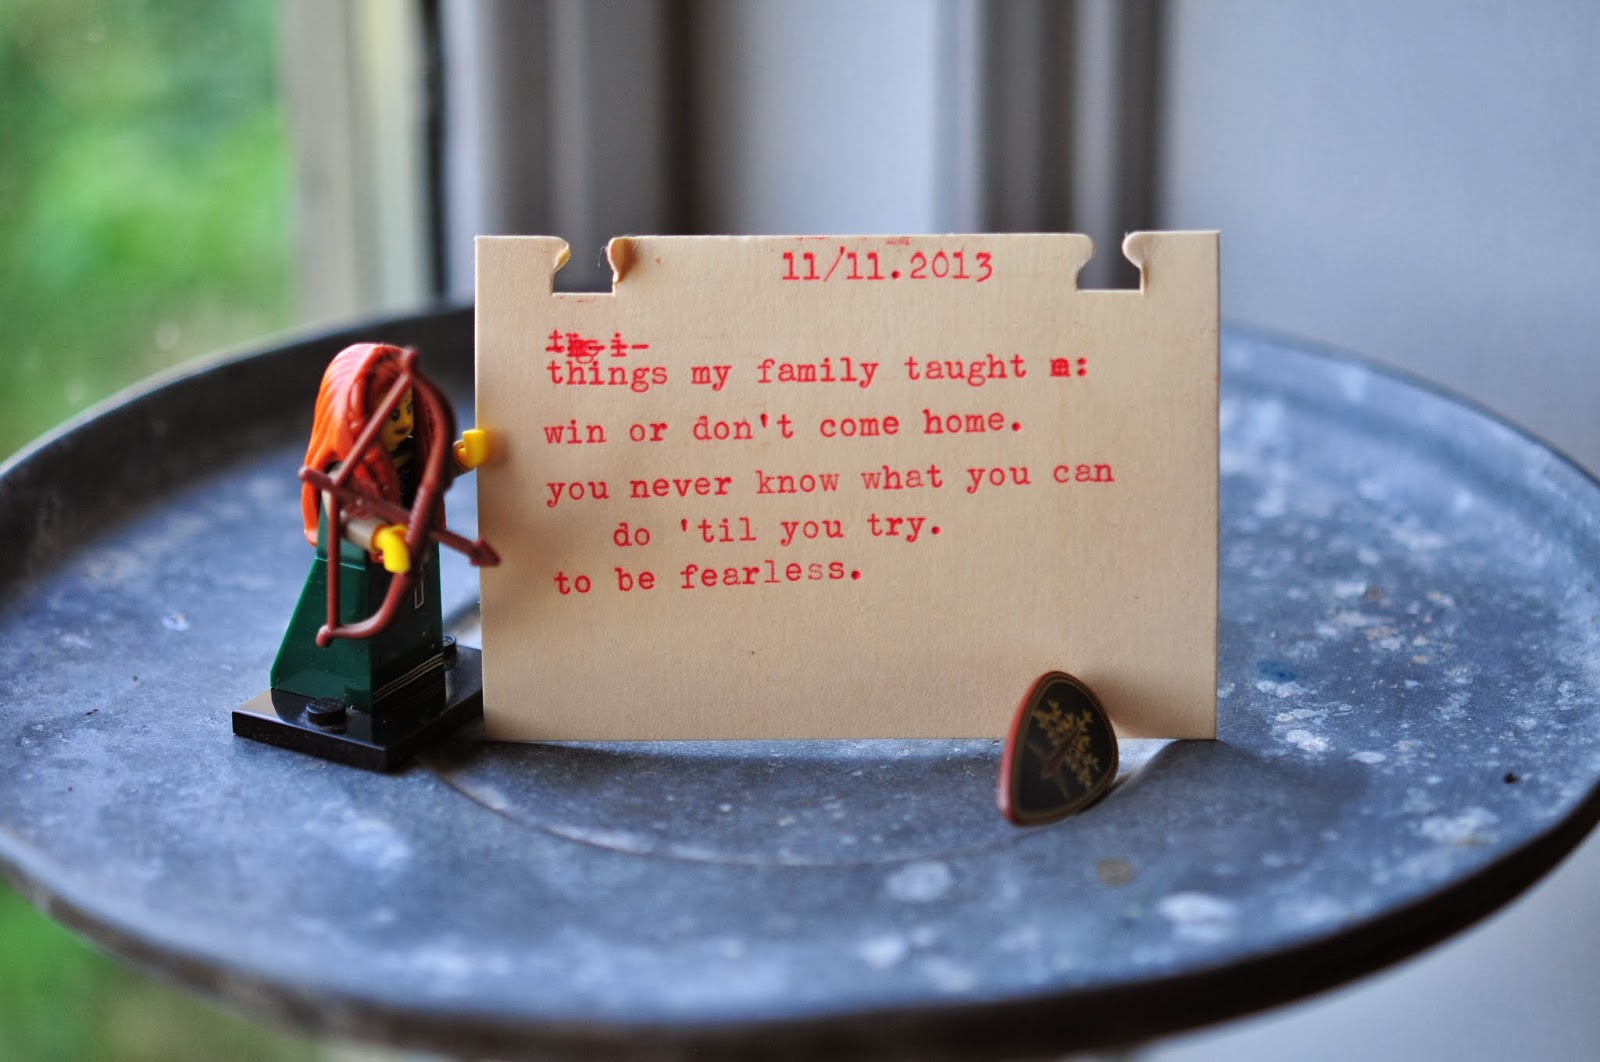 11/11.2013
things my family taught :
win or don't come home.
you never know what you can
do 'til you try.
to be fearless.